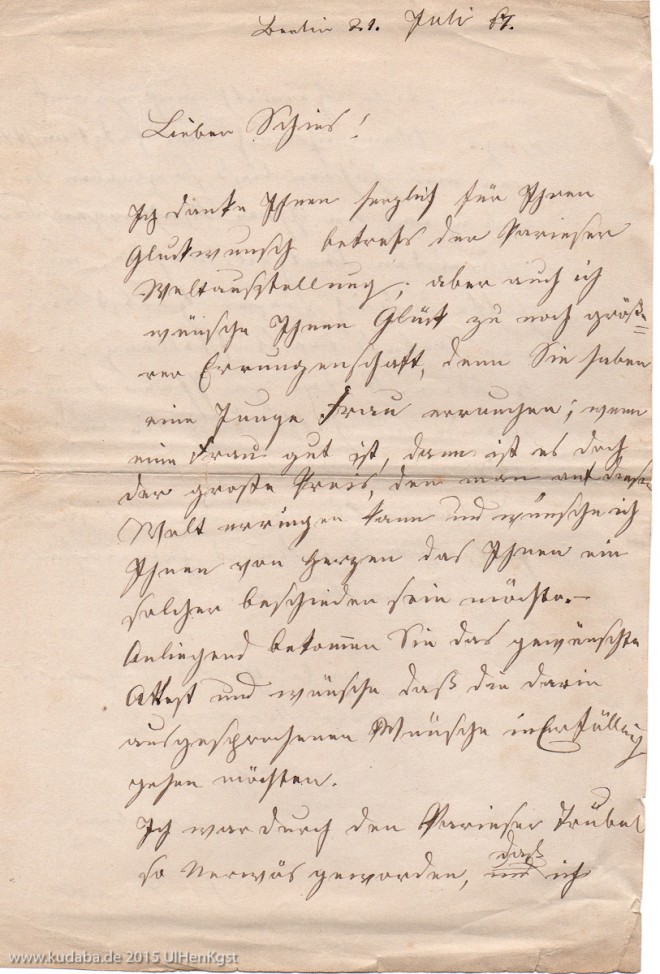 Berlin 21. Juli 67.
Lieber Schies!
Ich danke Ihnen herzlich für Ihren
Gluckwunsch betreffs der Parieser
Weltausstellung; aber auch ich
wünsche Ihnen Glück zu noch größe=
rer Errungenschaft, denn Sie haben
eine Junge Frau errungen; wenn
eine Frau gut ist, dann ist es doch
der große Preis, den man auf dieser
Welt erringen kann und wünsche ich
Ihnen von Herzen das Ihnen ein
solcher beschieden sein möchte.—
Anliegend bekommen Sie das gewünschte
Attest und wünsche daß die darin
ausgesprochenen Wünsche in Erfüllung
gehen möchten.
Ich war durch den Parieser Trubel
so Nervös geworden, daß ich
www.kudaba.de 2015 UlHenKgst